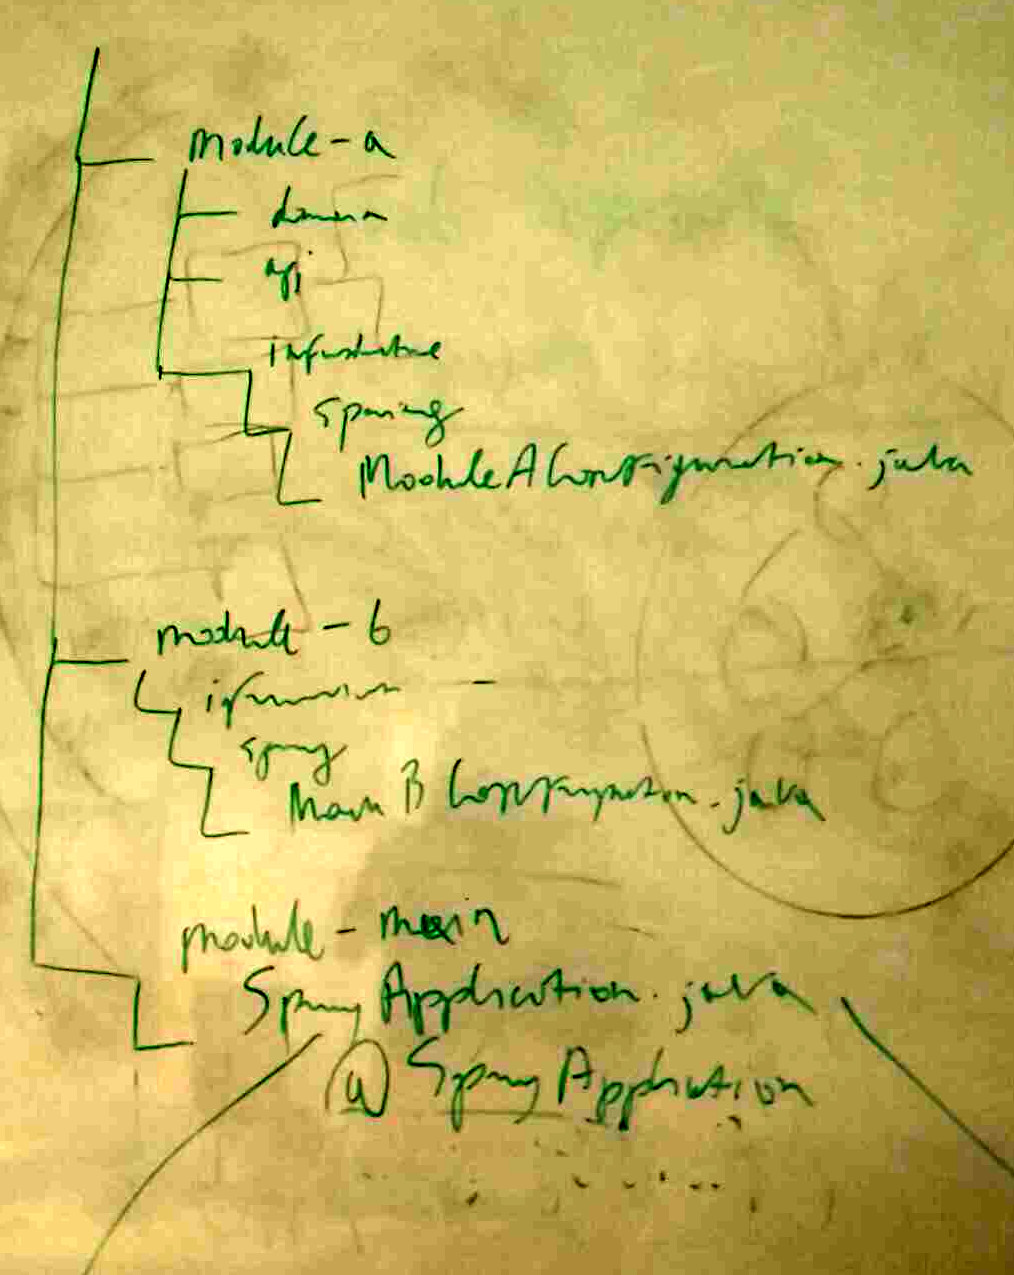 module-a
domain
api
infrastructure
spring
ModuleAConfiguration.java
module-b
infrastructure
spring
B Configuration.java
module-main
SpringApplication.java
@SpringApplication